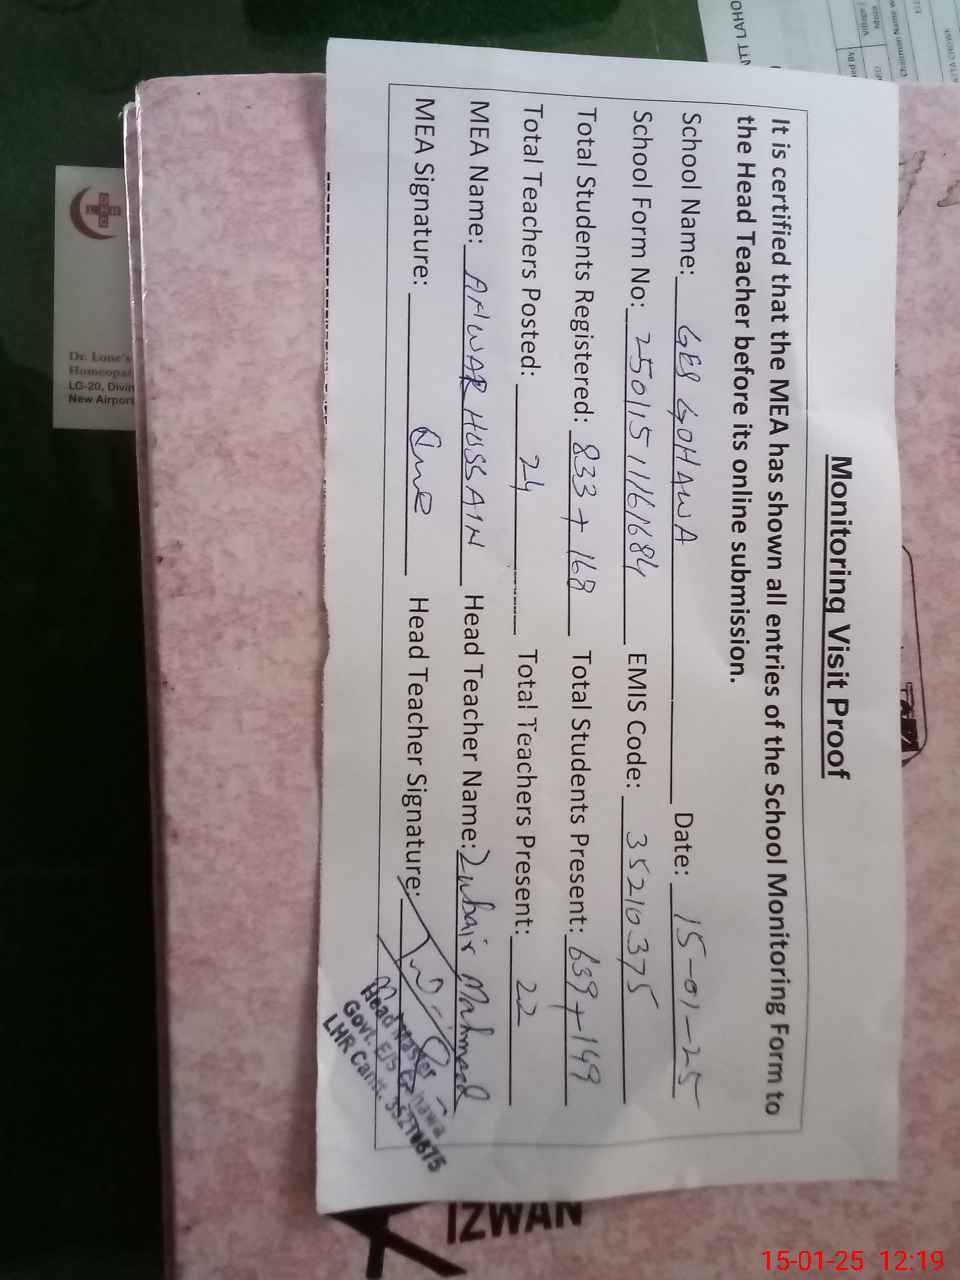 Monitoring Visit Proof
It is certified that the MEA has shown all entries of the School Monitoring Form to
the Head Teacher before its online submission.
School Name: GES GOHAWA Date: 15-01-25
School Form No: 2501151161684 EMIS Code: 35210375
Total Students Registered: 833 + 168 Total Students Present: 639 + 149
Total Teachers Posted: 24 Total Teachers Present: 22
MEA Name: ANWAR HUSSAIN Head Teacher Name: Zubair Mahmood
MEA Signature: Head Teacher Signature:
Head Master
Govt. E/S Gohawa
LHR Cantt.
Dr. Lone's
Homeopat
LG-20, Divin
New Airport
IZWAN
TT LAHO
15-01-25 12:19